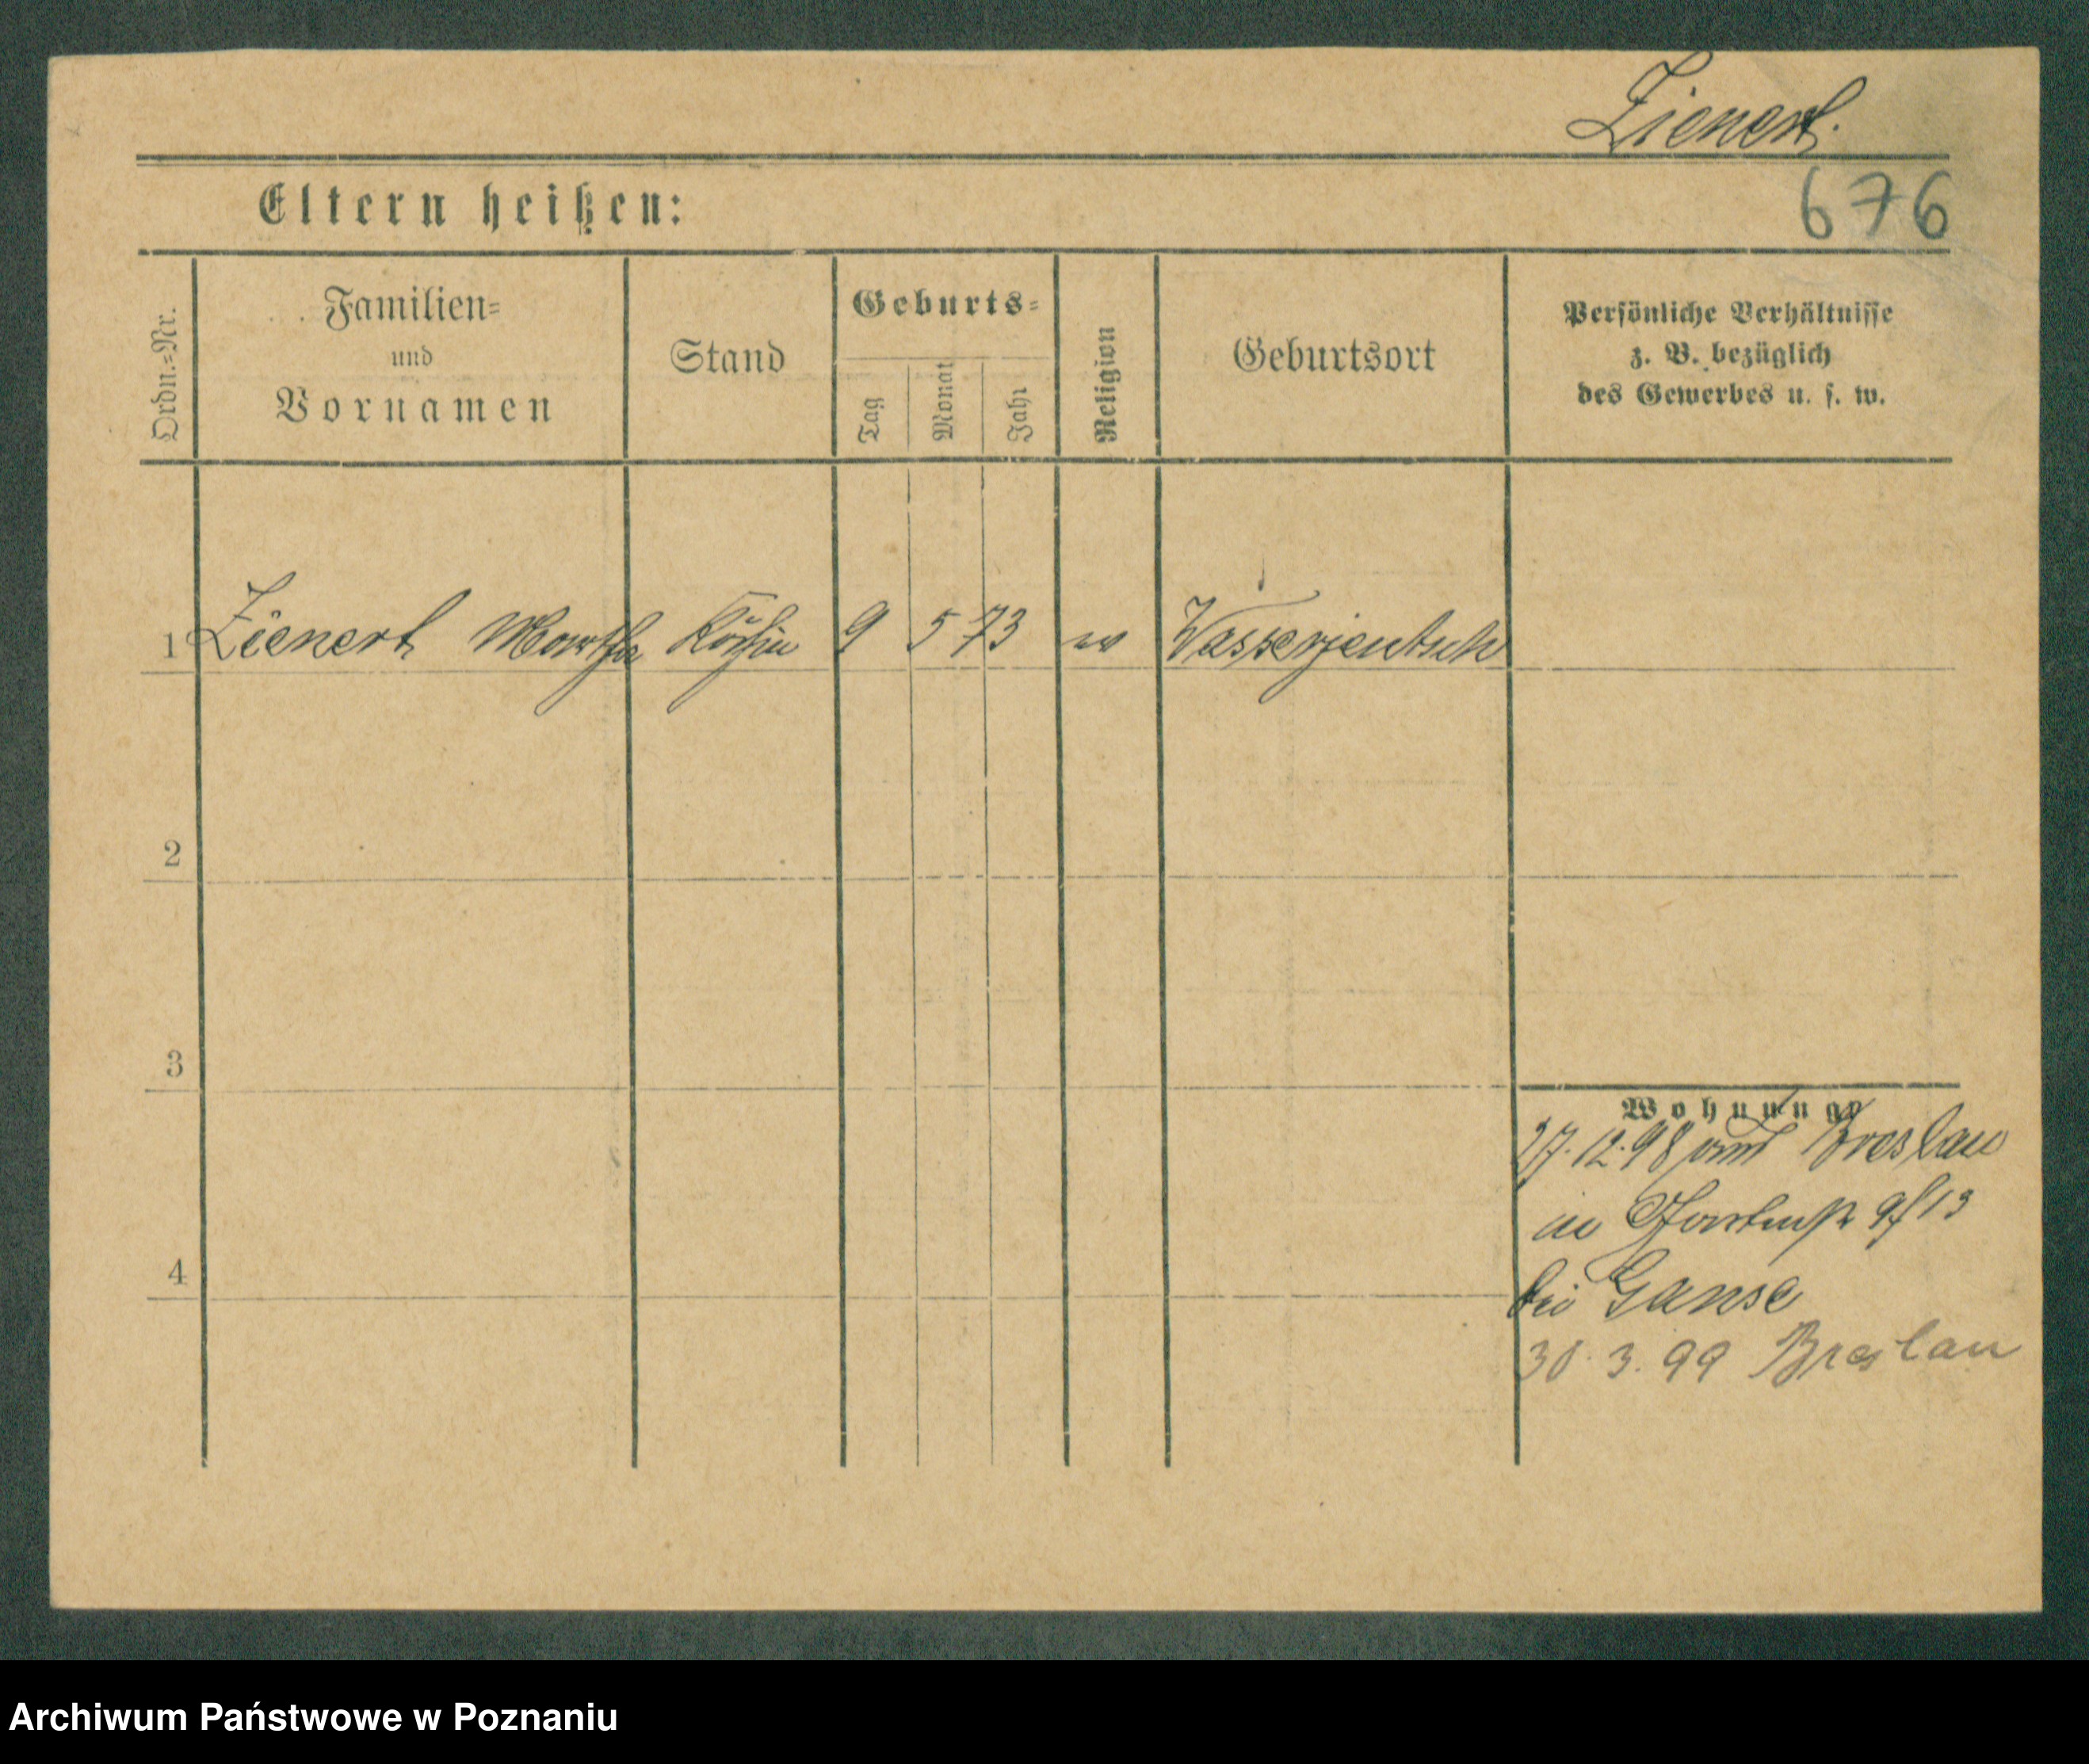 Zienert.
676
Eltern heißen:
Ordn.=Nr.
Familien=
und
Vornamen
Stand
Geburts=
Tag
Monat
Jahr
Religion
Geburtsort
Persönliche Verhältnisse
z. B. bezüglich
des Gewerbes u. s. w.
1 Zienert Martha Köchin 9 5 73 ev Wasserjentsch
2
3
4
Wohnung
27.12.98 von Breslau
in 9/13
bei Ganse
30.3.99 Breslau
Archiwum Państwowe w Poznaniu